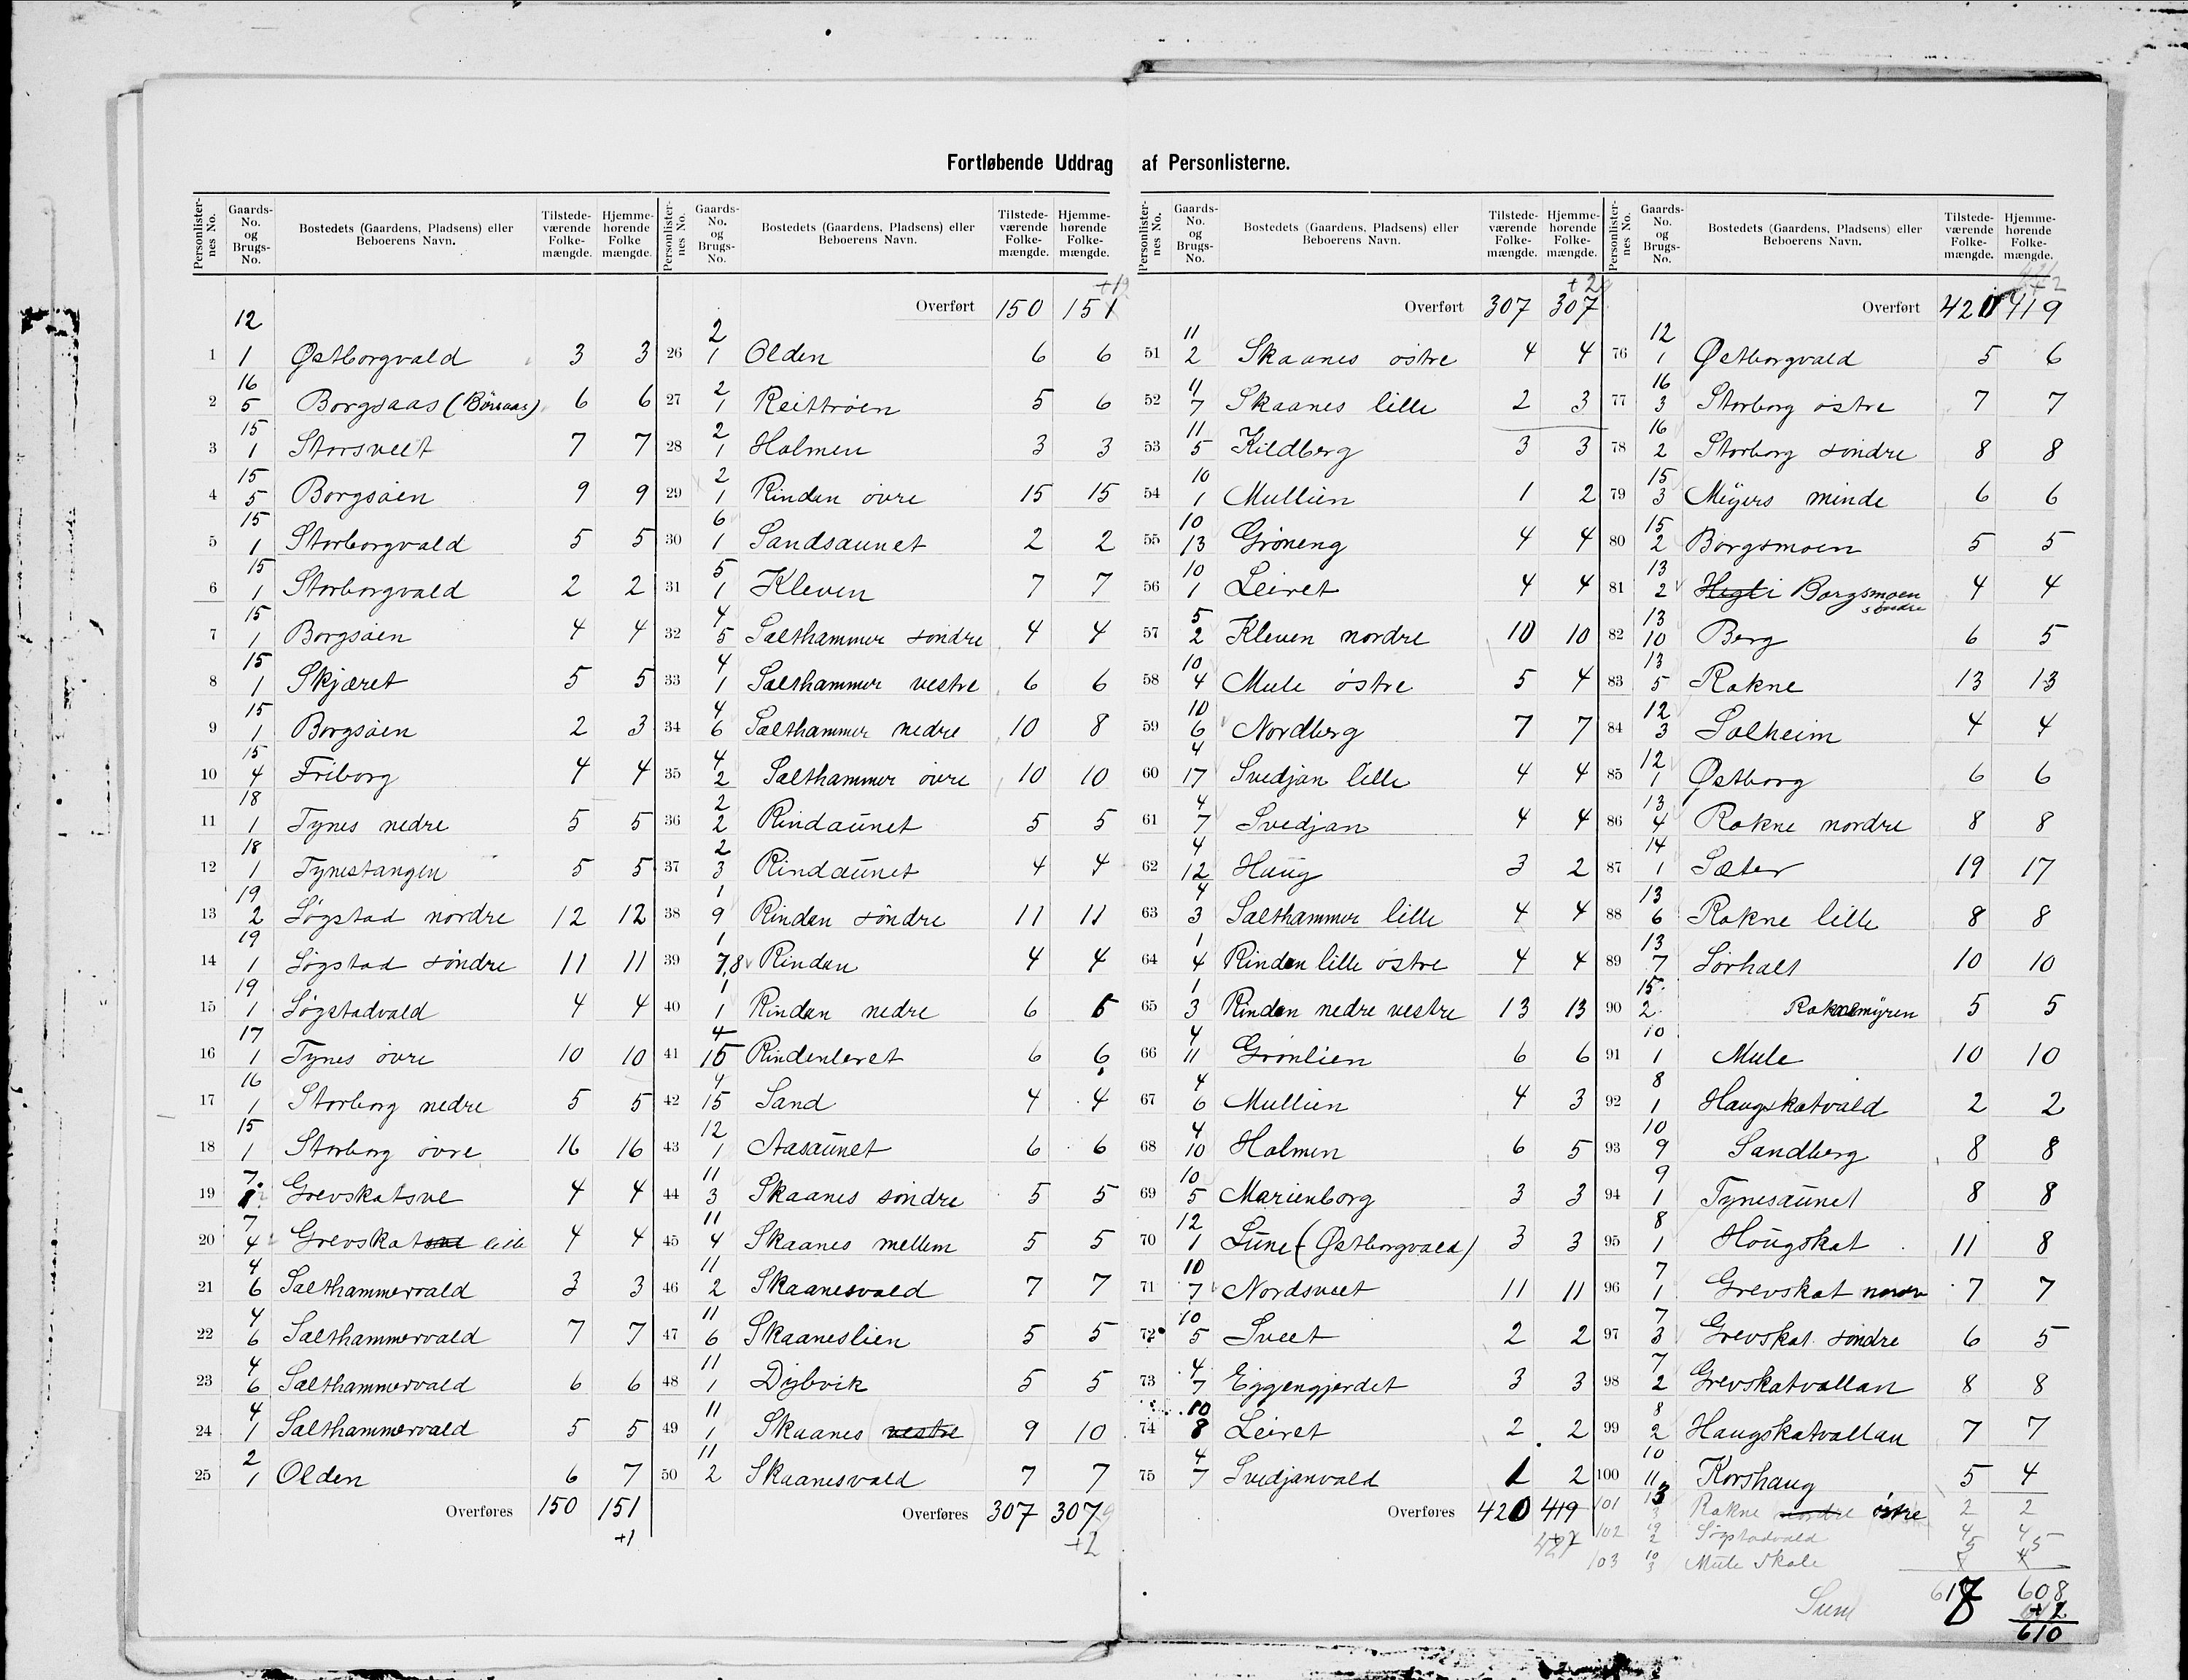 Fortløbende Uddrag af Personlisterne.
Personlister-nes No. Gaards-No. og Brugs-No. Bostedets (Gaardens, Pladsens) eller Beboerens Navn. Tilstede-værende Folke-mængde. Hjemme-hørende Folke mængde.
1 12/1 Østborgvald 3 3
2 16/5 Borgsaas (Börsaas) 6 6
3 15/1 Storsveet 7 7
4 15/5 Borgsöen 9 9
5 15/1 Storborgvald 5 5
6 15/1 Storborgvald 2 2
7 15/1 Borgsöen 4 4
8 15/1 Skjæret 5 5
9 15/1 Borgsöen 2 3
10 15/4 Friborg 4 4
11 18/1 Tynes nedre 5 5
12 18/1 Tynestangen 5 5
13 19/2 Søgstad nordre 12 12
14 19/1 Søgstad söndre 11 11
15 19/1 Søgstadvald 4 4
16 17/1 Tynes övre 10 10
17 16/1 Storborg nedre 5 5
18 15/1 Storborg övre 16 16
19 7/1 Grevskatsve 4 4
20 7/4 Grevskat lille 4 4
21 4/6 Salthammervald 3 3
22 4/6 Salthammervald 7 7
23 4/6 Salthammervald 6 6
24 4/1 Salthammervald 5 5
25 2/1 Olden 6 7
Overføres 150 151
+1
Personlister-nes No. Gaards-No. og Brugs-No. Bostedets (Gaardens, Pladsens) eller Beboerens Navn. Tilstede-værende Folke-mængde. Hjemme-hørende Folke-mængde.
+1
Overført 150 151
26 2/1 Olden 6 6
27 2/1 Reittröen 5 6
28 2/1 Holmen 3 3
29 2/1 Rindan övre 15 15
30 6/1 Sandsaunet 2 2
31 5/1 Kleven 7 7
32 4/5 Salthammer söndre 4 4
33 4/1 Salthammer vestre 6 6
34 4/6 Salthammer nedre 10 8
35 4/2 Salthammer övre 10 10
36 2/2 Rindaunet 5 5
37 2/3 Rindaunet 4 4
38 1/9 Rindan söndre 11 11
39 1/7,8 Rindan 4 4
40 1/1 Rindan nedre 6 5
41 4/15 Rindenleret 6 6
42 4/15 Sand 4 4
43 12/1 Aasaunet 6 6
44 11/3 Skaanes söndre 5 5
45 11/4 Skaanes mellem 5 5
46 11/2 Skaanesvald 7 7
47 11/6 Skaaneslien 5 5
48 11/1 Dybvik 5 5
49 11/1 Skaanes (vestre) 9 10
50 11/2 Skaanesvald 7 7
Overføres 307 307
+2
Personlister-nes No. Gaards-No. og Brugs-No. Bostedets (Gaardens, Pladsens) eller Beboerens Navn. Tilstede-værende Folke-mængde. Hjemme-hørende Folke-mængde.
+2
Overført 307 307
51 11/2 Skaanes östre 4 4
52 11/7 Skaanes lille 2 3
53 11/5 Kildberg 3 3
54 10/1 Mullien 1 2
55 10/13 Gröneng 4 4
56 10/1 Leiret 4 4
57 5/2 Kleven nordre 10 10
58 10/4 Mule östre 5 4
59 10/6 Nordberg 7 7
60 4/17 Svedjan lille 4 4
61 4/7 Svedjan 4 4
62 4/12 Haug 3 2
63 4/3 Salthammer lille 4 4
64 1/4 Rindan lille östre 4 4
65 1/3 Rindan nedre vestre 13 13
66 4/11 Grönlien 6 6
67 4/6 Mullien 4 3
68 4/10 Holmen 6 5
69 10/5 Marienborg 3 3
70 12/1 Lune (Østborgvald) 3 3
71 10/7 Nordsveet 11 11
72 10/5 Sveet 2 2
73 4/7 Eggengjerdet 3 3
74 10/8 Leiret 2 2
75 4/7 Svedjanvald 1 2
Overføres 420 419
421
Personlister-nes No. Gaards-No. og Brugs-No. Bostedets (Gaardens, Pladsens) eller Beboerens Navn. Tilstede-værende Folke-mængde. Hjemme-hørende Folke-mængde.
Overført 420 419
76 12/1 Østborgvald 5 6
77 16/3 Storborg östre 7 7
78 16/2 Storborg söndre 8 8
79 15/3 Meyers minde 6 6
80 15/2 Borgsmoen 5 5
81 13/2 Borgsmoen söndre 4 4
82 13/10 Berg 6 5
83 13/5 Rokne 13 13
84 12/3 Solheim 4 4
85 12/1 Østborg 6 6
86 13/4 Rokne nordre 8 8
87 14/1 Sæter 19 17
88 13/6 Rokne lille 8 8
89 13/7 Sörhalt 10 10
90 15/2 Roknemyren 5 5
91 10/1 Mule 10 10
92 8/1 Haugskatvald 2 2
93 10/9 Sandberg 8 8
94 9/1 Tynesaunet 8 8
95 8/1 Hougskat 11 8
96 7/1 Grevskat nordre 7 7
97 7/3 Grevskat söndre 6 5
98 7/2 Grevskatvollan 8 8
99 8/2 Haugskatvollan 7 7
100 10/11 Korshaug 5 4
101 13/3 Rokne nordre östre 2 2
102 19/2 Søgstadvald 4 4
103 10/3 Mule Skole 5 5
Sum 618 608
+2
610